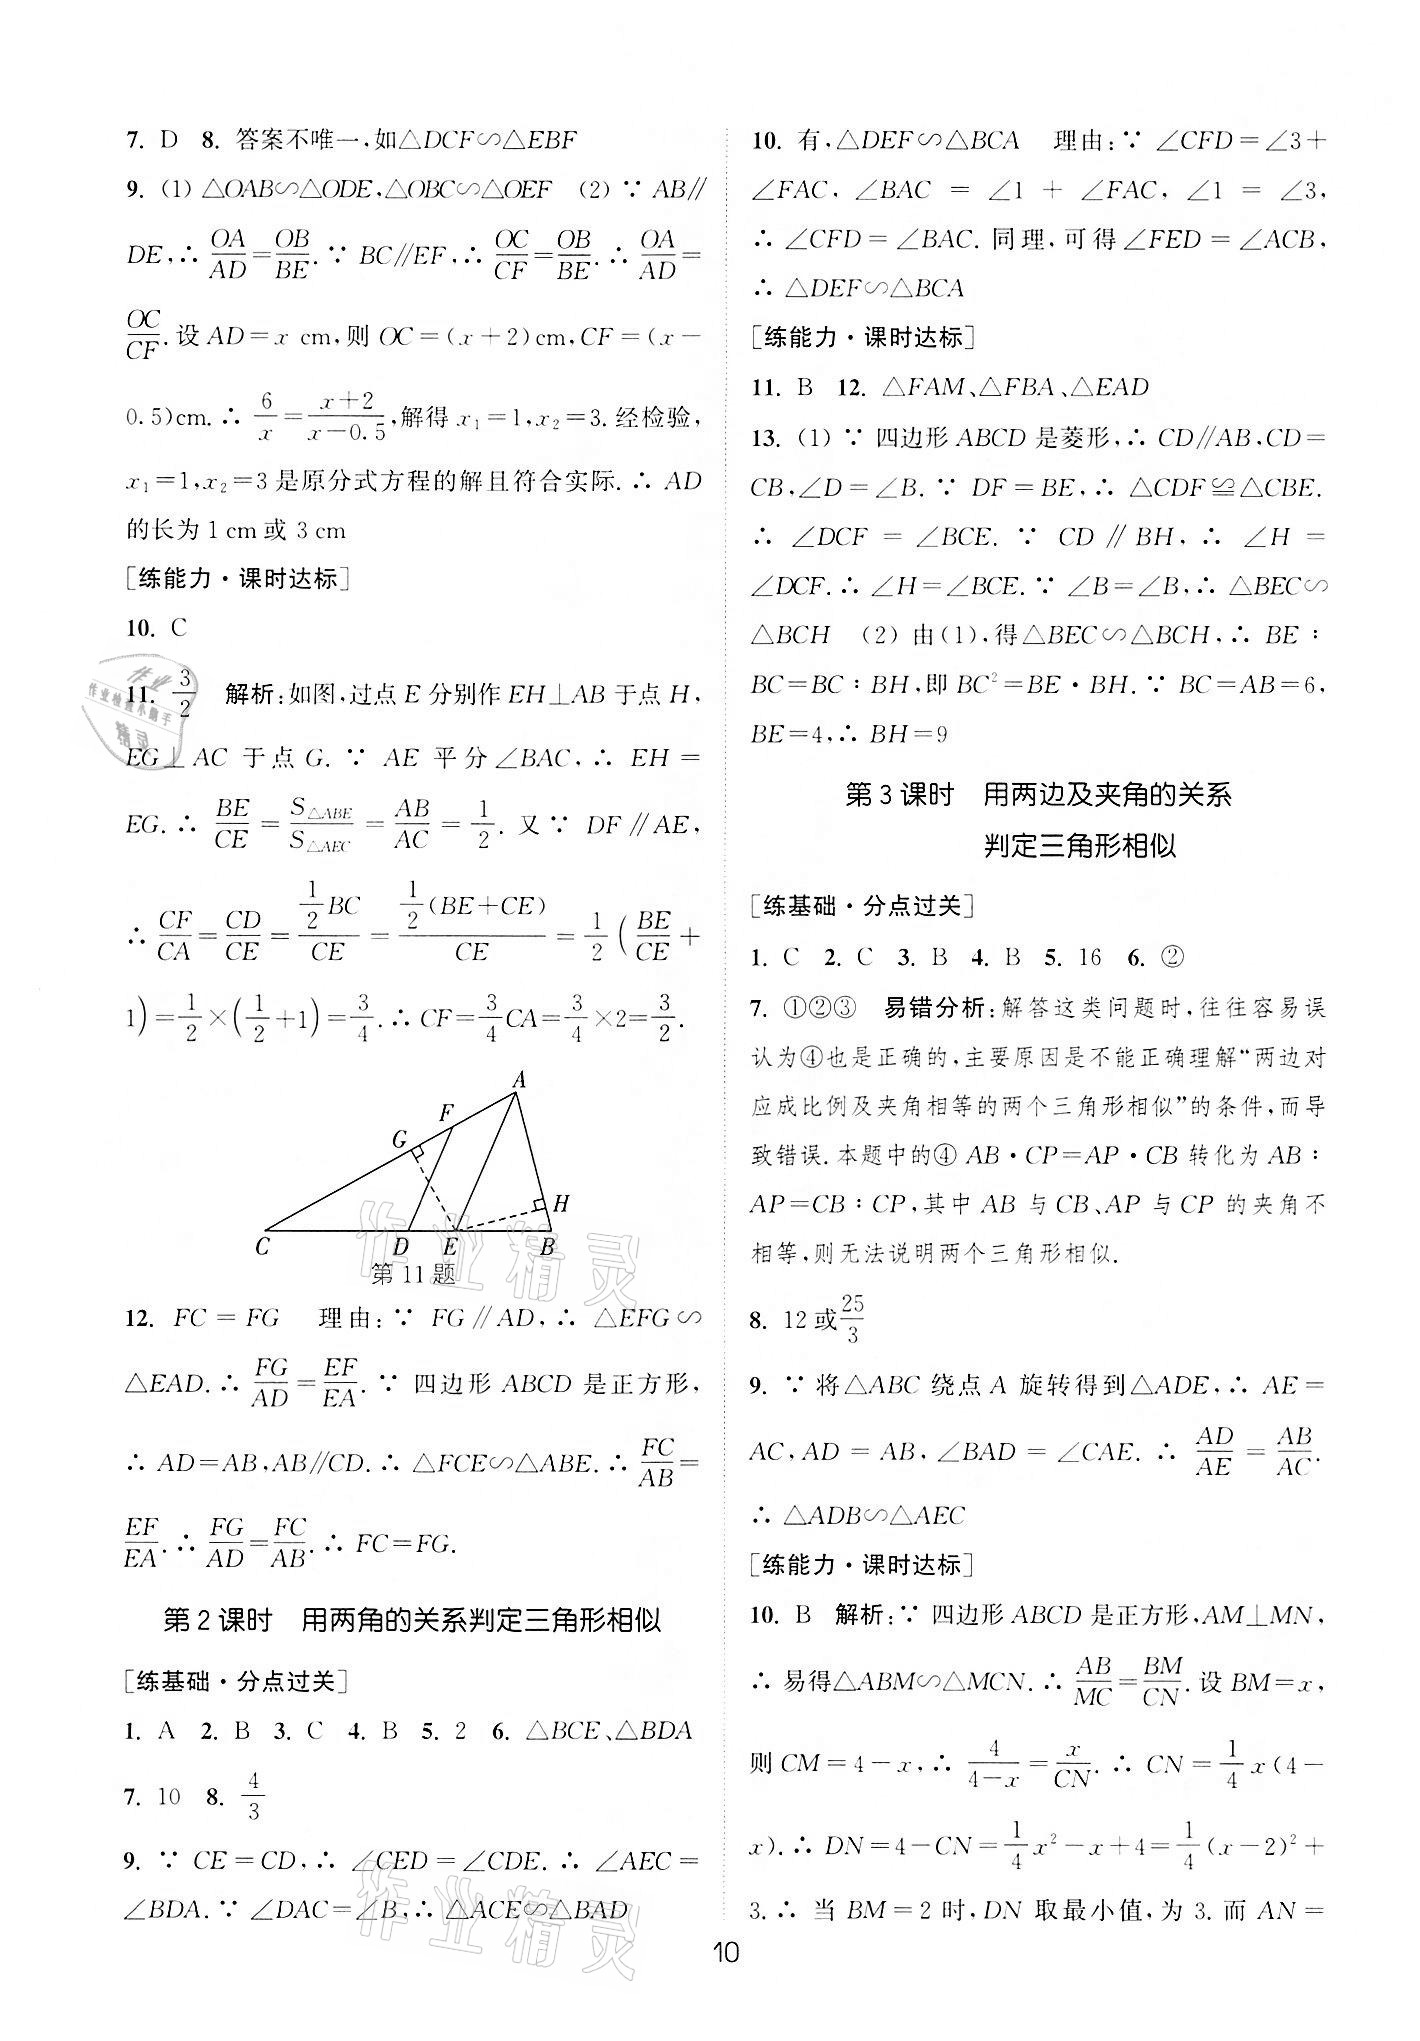 7. D 8. 答案不唯一,如△DCF∽△EBF
9. (1) △OAB∽△ODE,△OBC∽△OEF (2) ∵ AB∥
DE,∴ OA/AD=OB/BE. ∵ BC∥EF,∴ OC/CF=OB/BE. ∴ OA/AD=
OC/CF. 设 AD=x cm,则 OC=(x+2)cm,CF=(x-
0.5)cm. ∴ 6/x=(x+2)/(x-0.5),解得 x₁=1,x₂=3. 经检验,
x₁=1,x₂=3 是原分式方程的解且符合实际. ∴ AD
的长为 1 cm 或 3 cm
[练能力·课时达标]
10. C
11. 3/2 解析:如图,过点 E 分别作 EH⊥AB 于点 H,
EG⊥AC 于点 G. ∵ AE 平分∠BAC,∴ EH=
EG. ∴ BE/CE=S△ABE/S△AEC=AB/AC=1/2. 又∵ DF∥AE,
∴ CF/CA=CD/CE=(1/2)BC/CE=(1/2)(BE+CE)/CE=1/2(BE/CE+
1)=1/2×(1/2+1)=3/4. ∴ CF=3/4CA=3/4×2=3/2.
A
F
G
H
C D E B
第 11 题
12. FC=FG 理由:∵ FG∥AD,∴ △EFG∽
△EAD. ∴ FG/AD=EF/EA. ∵ 四边形 ABCD 是正方形,
∴ AD=AB,AB∥CD. ∴ △FCE∽△ABE. ∴ FC/AB=
EF/EA. ∴ FG/AD=FC/AB. ∴ FC=FG.
第 2 课时 用两角的关系判定三角形相似
[练基础·分点过关]
1. A 2. B 3. C 4. B 5. 2 6. △BCE、△BDA
7. 10 8. 4/3
9. ∵ CE=CD,∴ ∠CED=∠CDE. ∴ ∠AEC=
∠BDA. ∵ ∠DAC=∠B,∴ △ACE∽△BAD
10. 有,△DEF∽△BCA 理由:∵ ∠CFD=∠3+
∠FAC,∠BAC=∠1+∠FAC,∠1=∠3,
∴ ∠CFD=∠BAC. 同理,可得∠FED=∠ACB,
∴ △DEF∽△BCA
[练能力·课时达标]
11. B 12. △FAM、△FBA、△EAD
13. (1) ∵ 四边形 ABCD 是菱形,∴ CD∥AB,CD=
CB,∠D=∠B. ∵ DF=BE,∴ △CDF≌△CBE.
∴ ∠DCF=∠BCE. ∵ CD∥BH,∴ ∠H=
∠DCF. ∴ ∠H=∠BCE. ∵ ∠B=∠B,∴ △BEC∽
△BCH (2) 由(1),得△BEC∽△BCH,∴ BE:
BC=BC:BH,即 BC²=BE·BH. ∵ BC=AB=6,
BE=4,∴ BH=9
第 3 课时 用两边及夹角的关系
判定三角形相似
[练基础·分点过关]
1. C 2. C 3. B 4. B 5. 16 6. ②
7. ①②③ 易错分析:解答这类问题时,往往容易误
认为④也是正确的,主要原因是不能正确理解“两边对
应成比例及夹角相等的两个三角形相似”的条件,而导
致错误. 本题中的④ AB·CP=AP·CB 转化为 AB:
AP=CB:CP,其中 AB 与 CB、AP 与 CP 的夹角不
相等,则无法说明两个三角形相似.
8. 12或25/3
9. ∵ 将△ABC 绕点 A 旋转得到△ADE,∴ AE=
AC,AD=AB,∠BAD=∠CAE. ∴ AD/AE=AB/AC.
∴ △ADB∽△AEC
[练能力·课时达标]
10. B 解析:∵ 四边形 ABCD 是正方形,AM⊥MN,
∴ 易得△ABM∽△MCN. ∴ AB/MC=BM/CN. 设 BM=x,
则 CM=4-x,∴ 4/(4-x)=x/CN. ∴ CN=1/4x(4-
x). ∴ DN=4-CN=1/4x²-x+4=1/4(x-2)²+
3. ∴ 当 BM=2 时,DN 取最小值,为 3. 而 AN=
10
作业
作业检查小助手
精灵
作业精灵
作业精灵